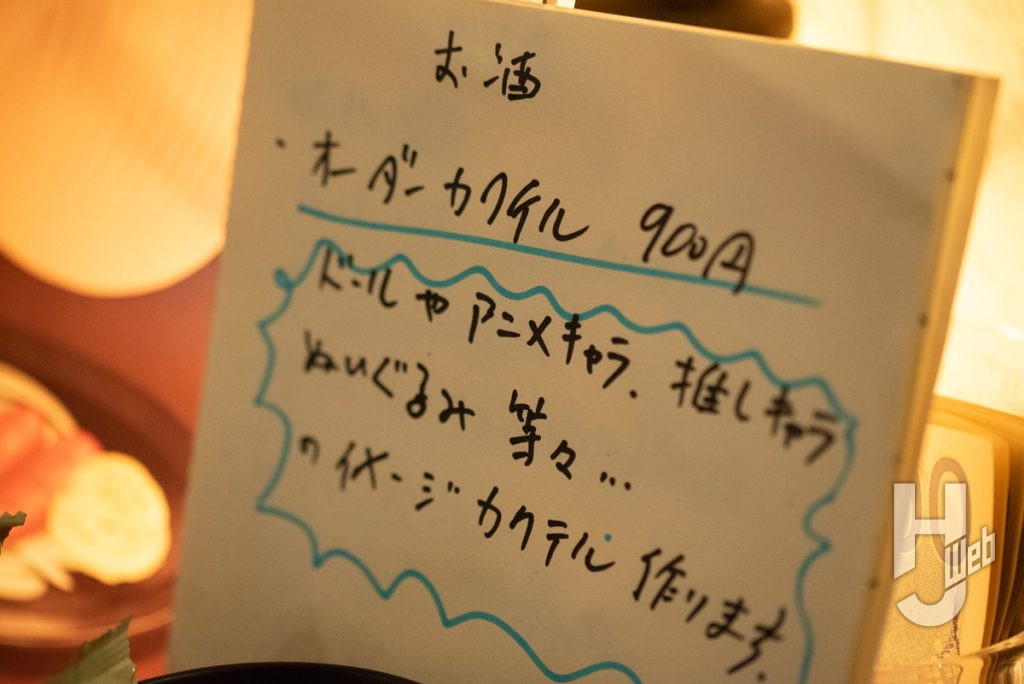 お酒
・オーダーカクテル 900円
ドールやアニメキャラ、推しキャラ
ぬいぐるみ 等々…
のイメージカクテル 作ります。
HJ Web